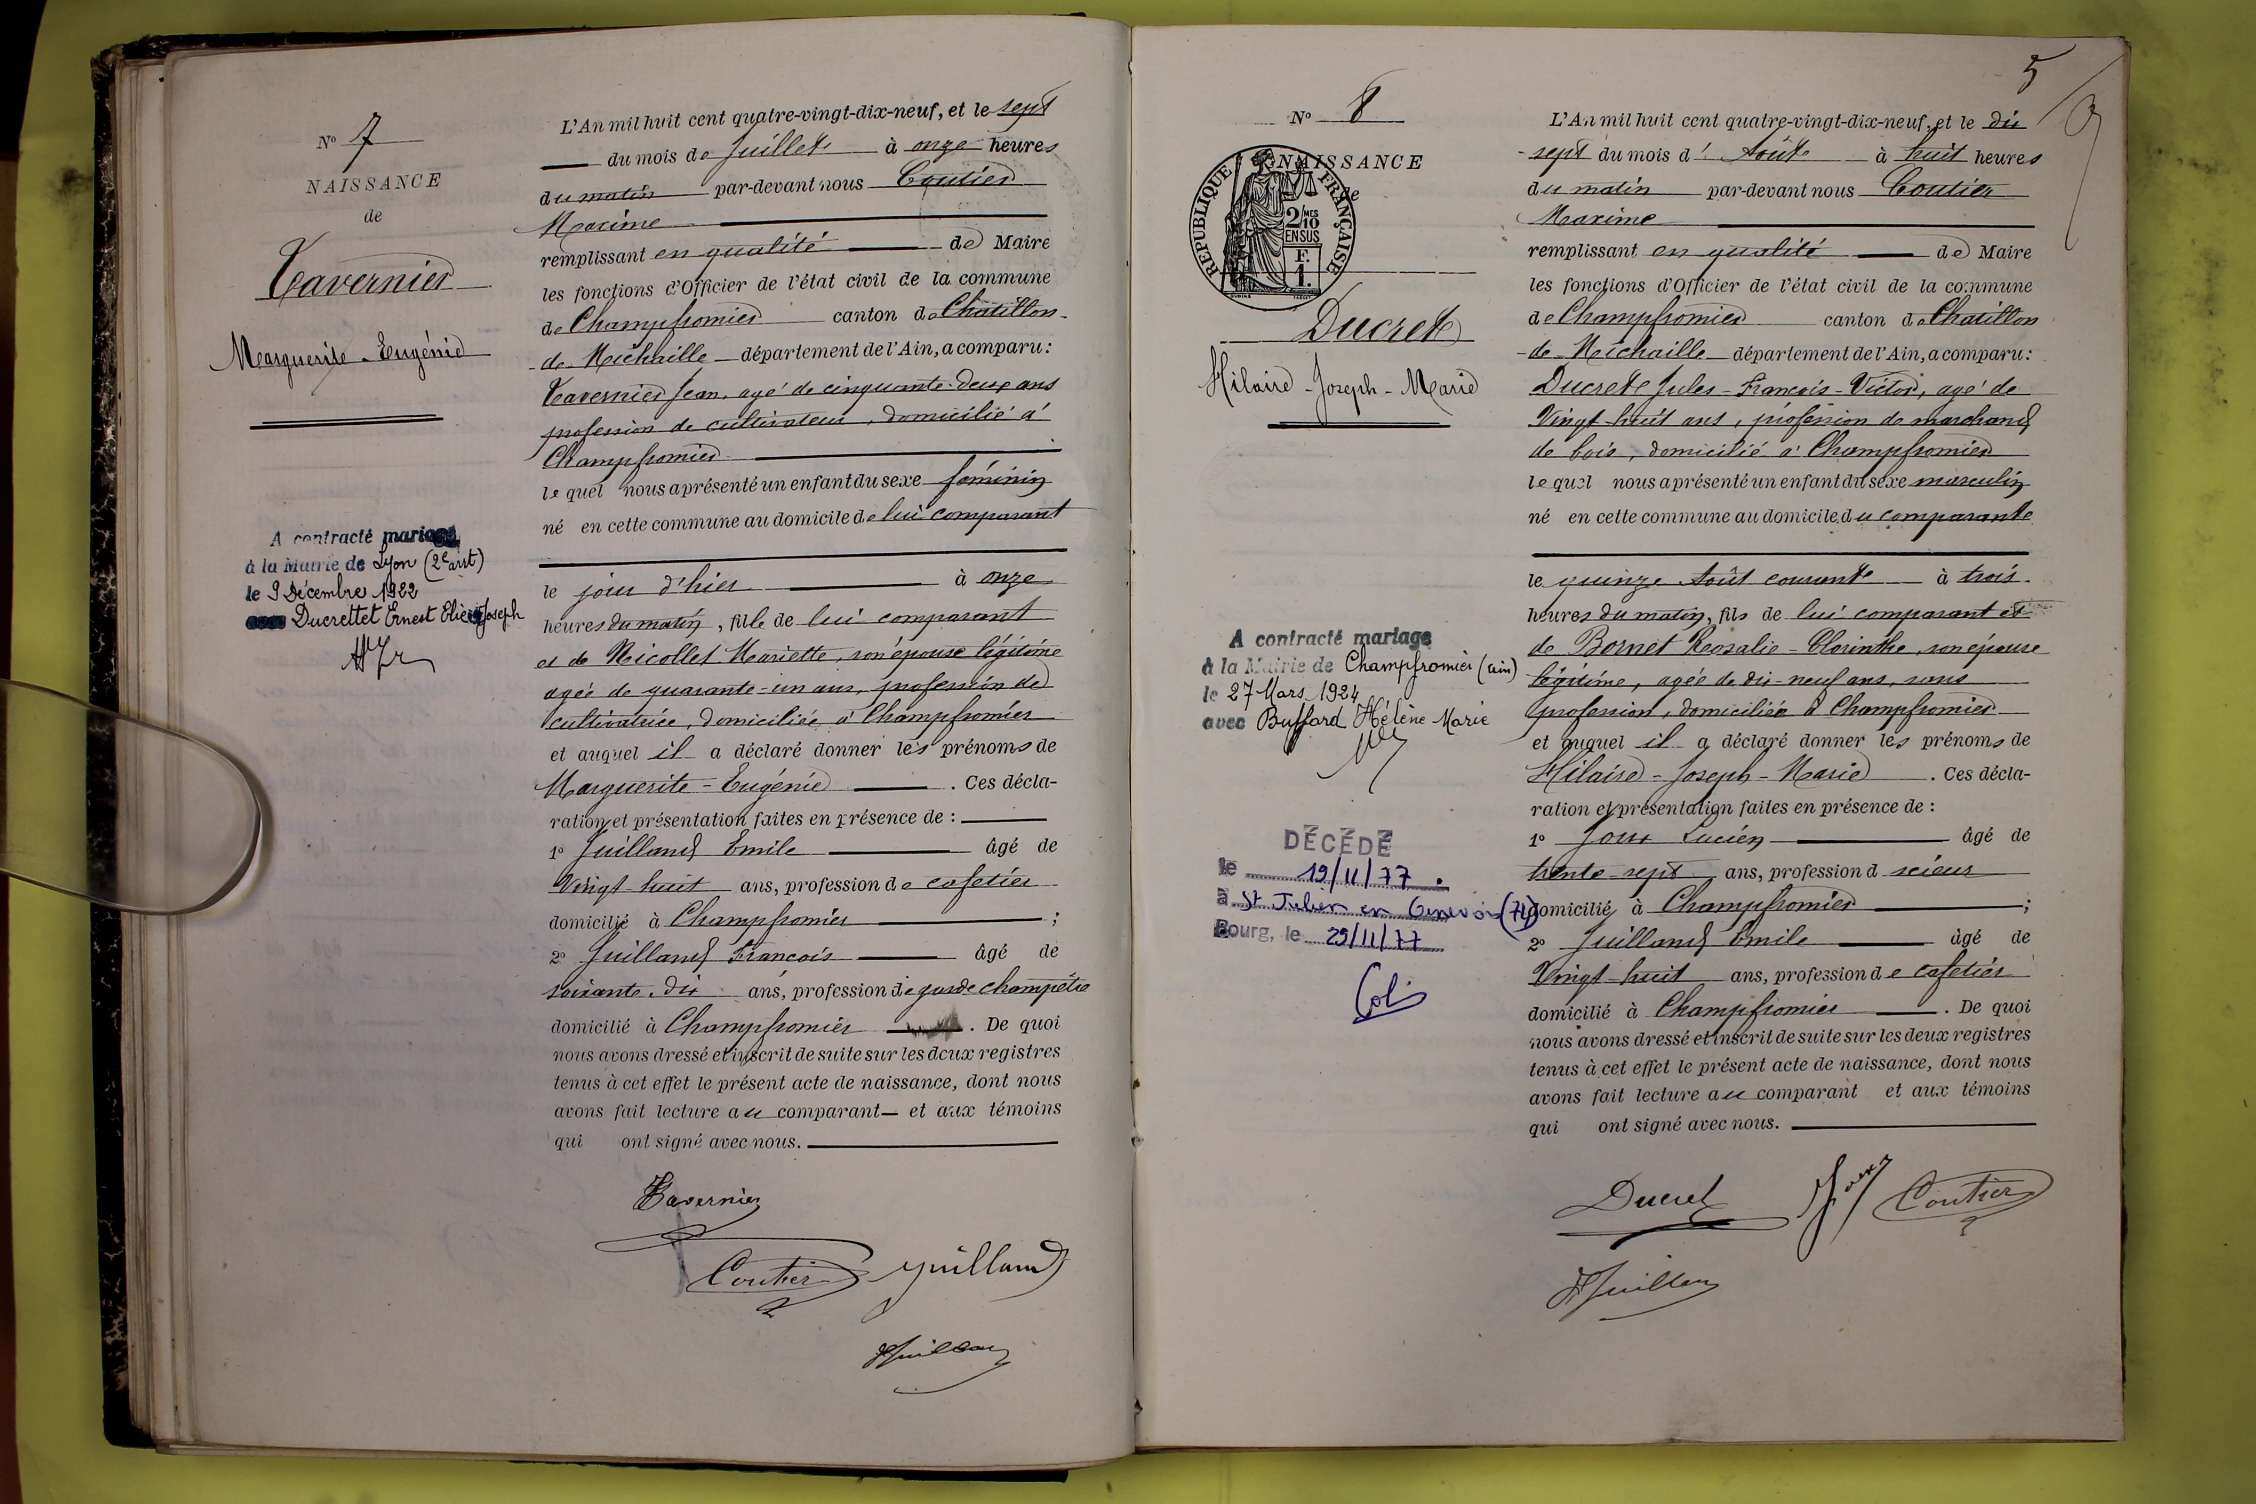 Nº 7
NAISSANCE
de
Tavernier
Marguerite-Eugénie
A contracté mariage
à la Mairie de Lyon (2e arrt)
le 9 Décembre 1922
Ducrettet Ernest Elie Joseph
L'An mil huit cent quatre-vingt-dix-neuf, et le sept
du mois de Juillet à onze heures
du matin par-devant nous Coutier
Maxime
remplissant en qualité de Maire
les fonctions d'Officier de l'état civil de la commune
de Champfromier canton de Chatillon-
-de-Michaille département de l'Ain, a comparu:
Tavernier Jean, agé de cinquante-deux ans
profession de cultivateur, domicilié à
Champfromier
lequel nous a présenté un enfant du sexe féminin
né en cette commune au domicile de lui comparant
le jour d'hier à onze
heures du matin, fille de lui comparant
et de Nicollet Mariette, son épouse légitime
agée de quarante-un ans, profession de
cultivatrice, domiciliée à Champfromier
et auquel il a déclaré donner les prénoms de
Marguerite-Eugénie. Ces décla-
ration et présentation faites en présence de:
1º Juilland Emile âgé de
Vingt huit ans, profession de cafetier
domicilié à Champfromier;
2º Juilland François âgé de
soixante-dix ans, profession de garde champêtre
domicilié à Champfromier. De quoi
nous avons dressé et inscrit de suite sur les deux registres
tenus à cet effet le présent acte de naissance, dont nous
avons fait lecture au comparant et aux témoins
qui ont signé avec nous.
Tavernier
Coutier Juilland
Juilland
5
Nº 8
NAISSANCE
de
REPUBLIQUE FRANÇAISE
2 MES
10
EN SUS
F.
1.
Ducret
Hilaire-Joseph-Marie
A contracté mariage
à la Mairie de Champfromier (ain)
le 27 Mars 1924
avec Buffard Hélène Marie
DÉCÉDÉ
le 19/11/77.
à St Julien en Genevois (74)
Bourg, le 29/11/77
L'An mil huit cent quatre-vingt-dix-neuf, et le dix
-sept du mois d'Août à huit heures
du matin par-devant nous Coutier
Maxime
remplissant en qualité de Maire
les fonctions d'Officier de l'état civil de la commune
de Champfromier canton de Chatillon
-de-Michaille département de l'Ain, a comparu:
Ducret Jules-François-Victor, agé de
Vingt-huit ans, profession de marchand
de bois, domicilié à Champfromier
lequel nous a présenté un enfant du sexe masculin
né en cette commune au domicile du comparant
le quinze Août courant à trois
heures du matin, fils de lui comparant et
de Bornet Rosalie-Clorinthe, son épouse
légitime, agée de dix-neuf ans, sans
profession, domiciliée à Champfromier
et auquel il a déclaré donner les prénoms de
Hilaire-Joseph-Marie. Ces décla-
ration et présentation faites en présence de:
1º Joux Lucien âgé de
trente-sept ans, profession d scieur
domicilié à Champfromier;
2º Juilland Emile âgé de
Vingt-huit ans, profession de cafetier
domicilié à Champfromier. De quoi
nous avons dressé et inscrit de suite sur les deux registres
tenus à cet effet le présent acte de naissance, dont nous
avons fait lecture au comparant et aux témoins
qui ont signé avec nous.
Ducret Joux Coutier
Juilland